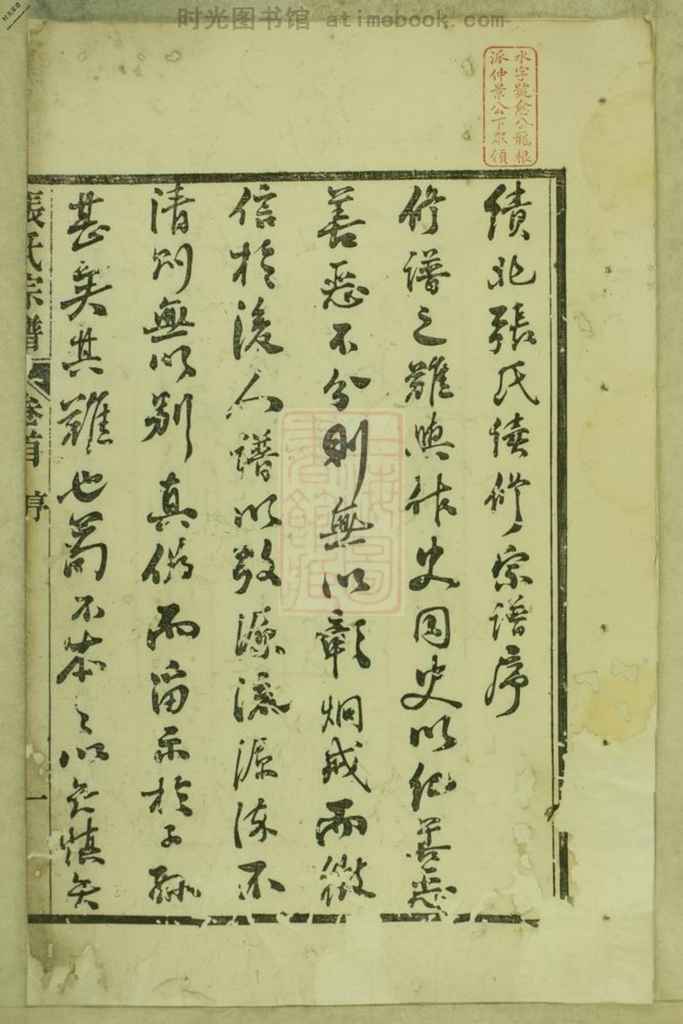 时光图书馆 atimebook.com
永字號愈公龍根
派仲景公下眾領
績北張氏續修宗譜序
修譜之難與作史同史以紀善惡
善惡不分則無以彰炯戒而徵
信於後人譜以敘源流源流不
清則無以別真偽而滋示於子孫
甚矣其難也苟不本之以矢慎矢
張氏宗譜 卷首 序 一